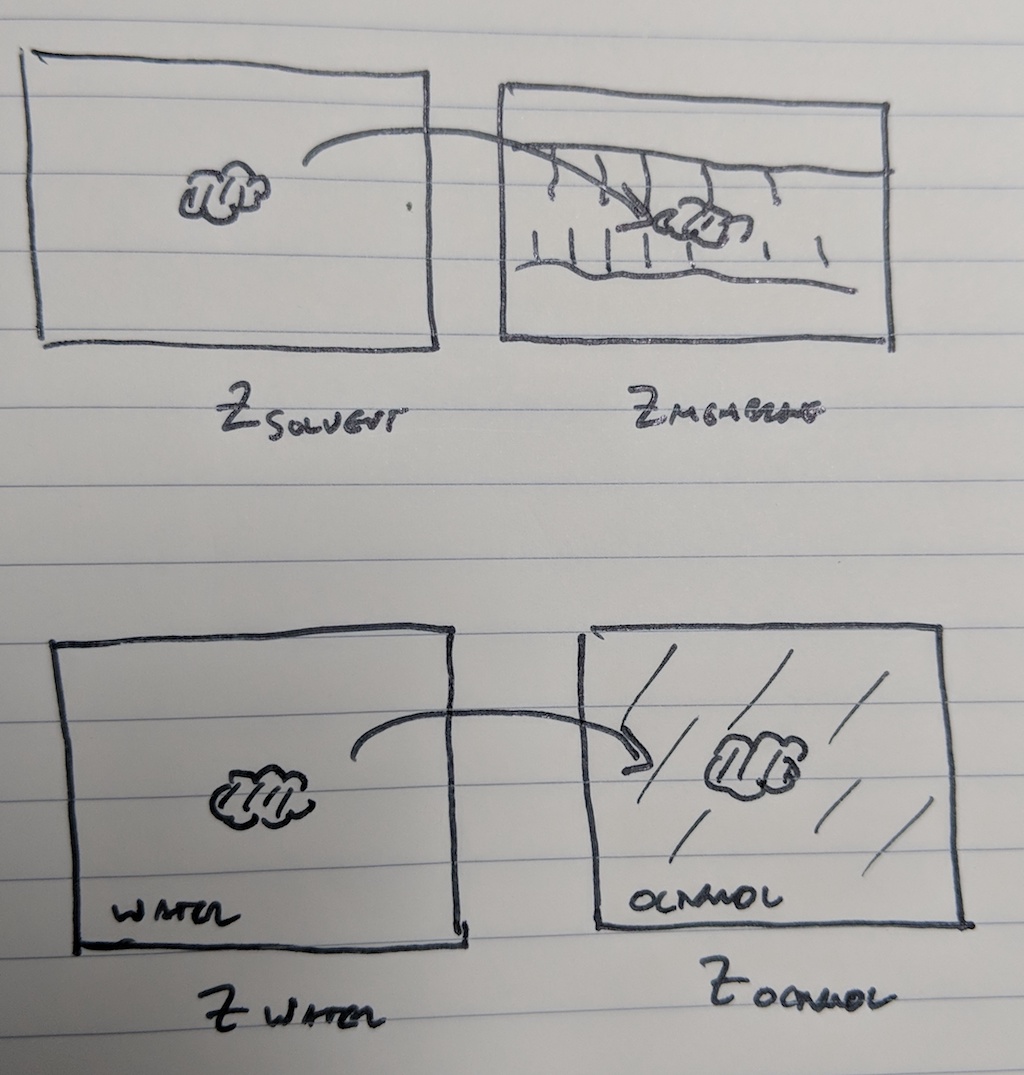 Z SOLVENT
Z MEMBRANE
WATER
OCTANOL
Z WATER
Z OCTANOL